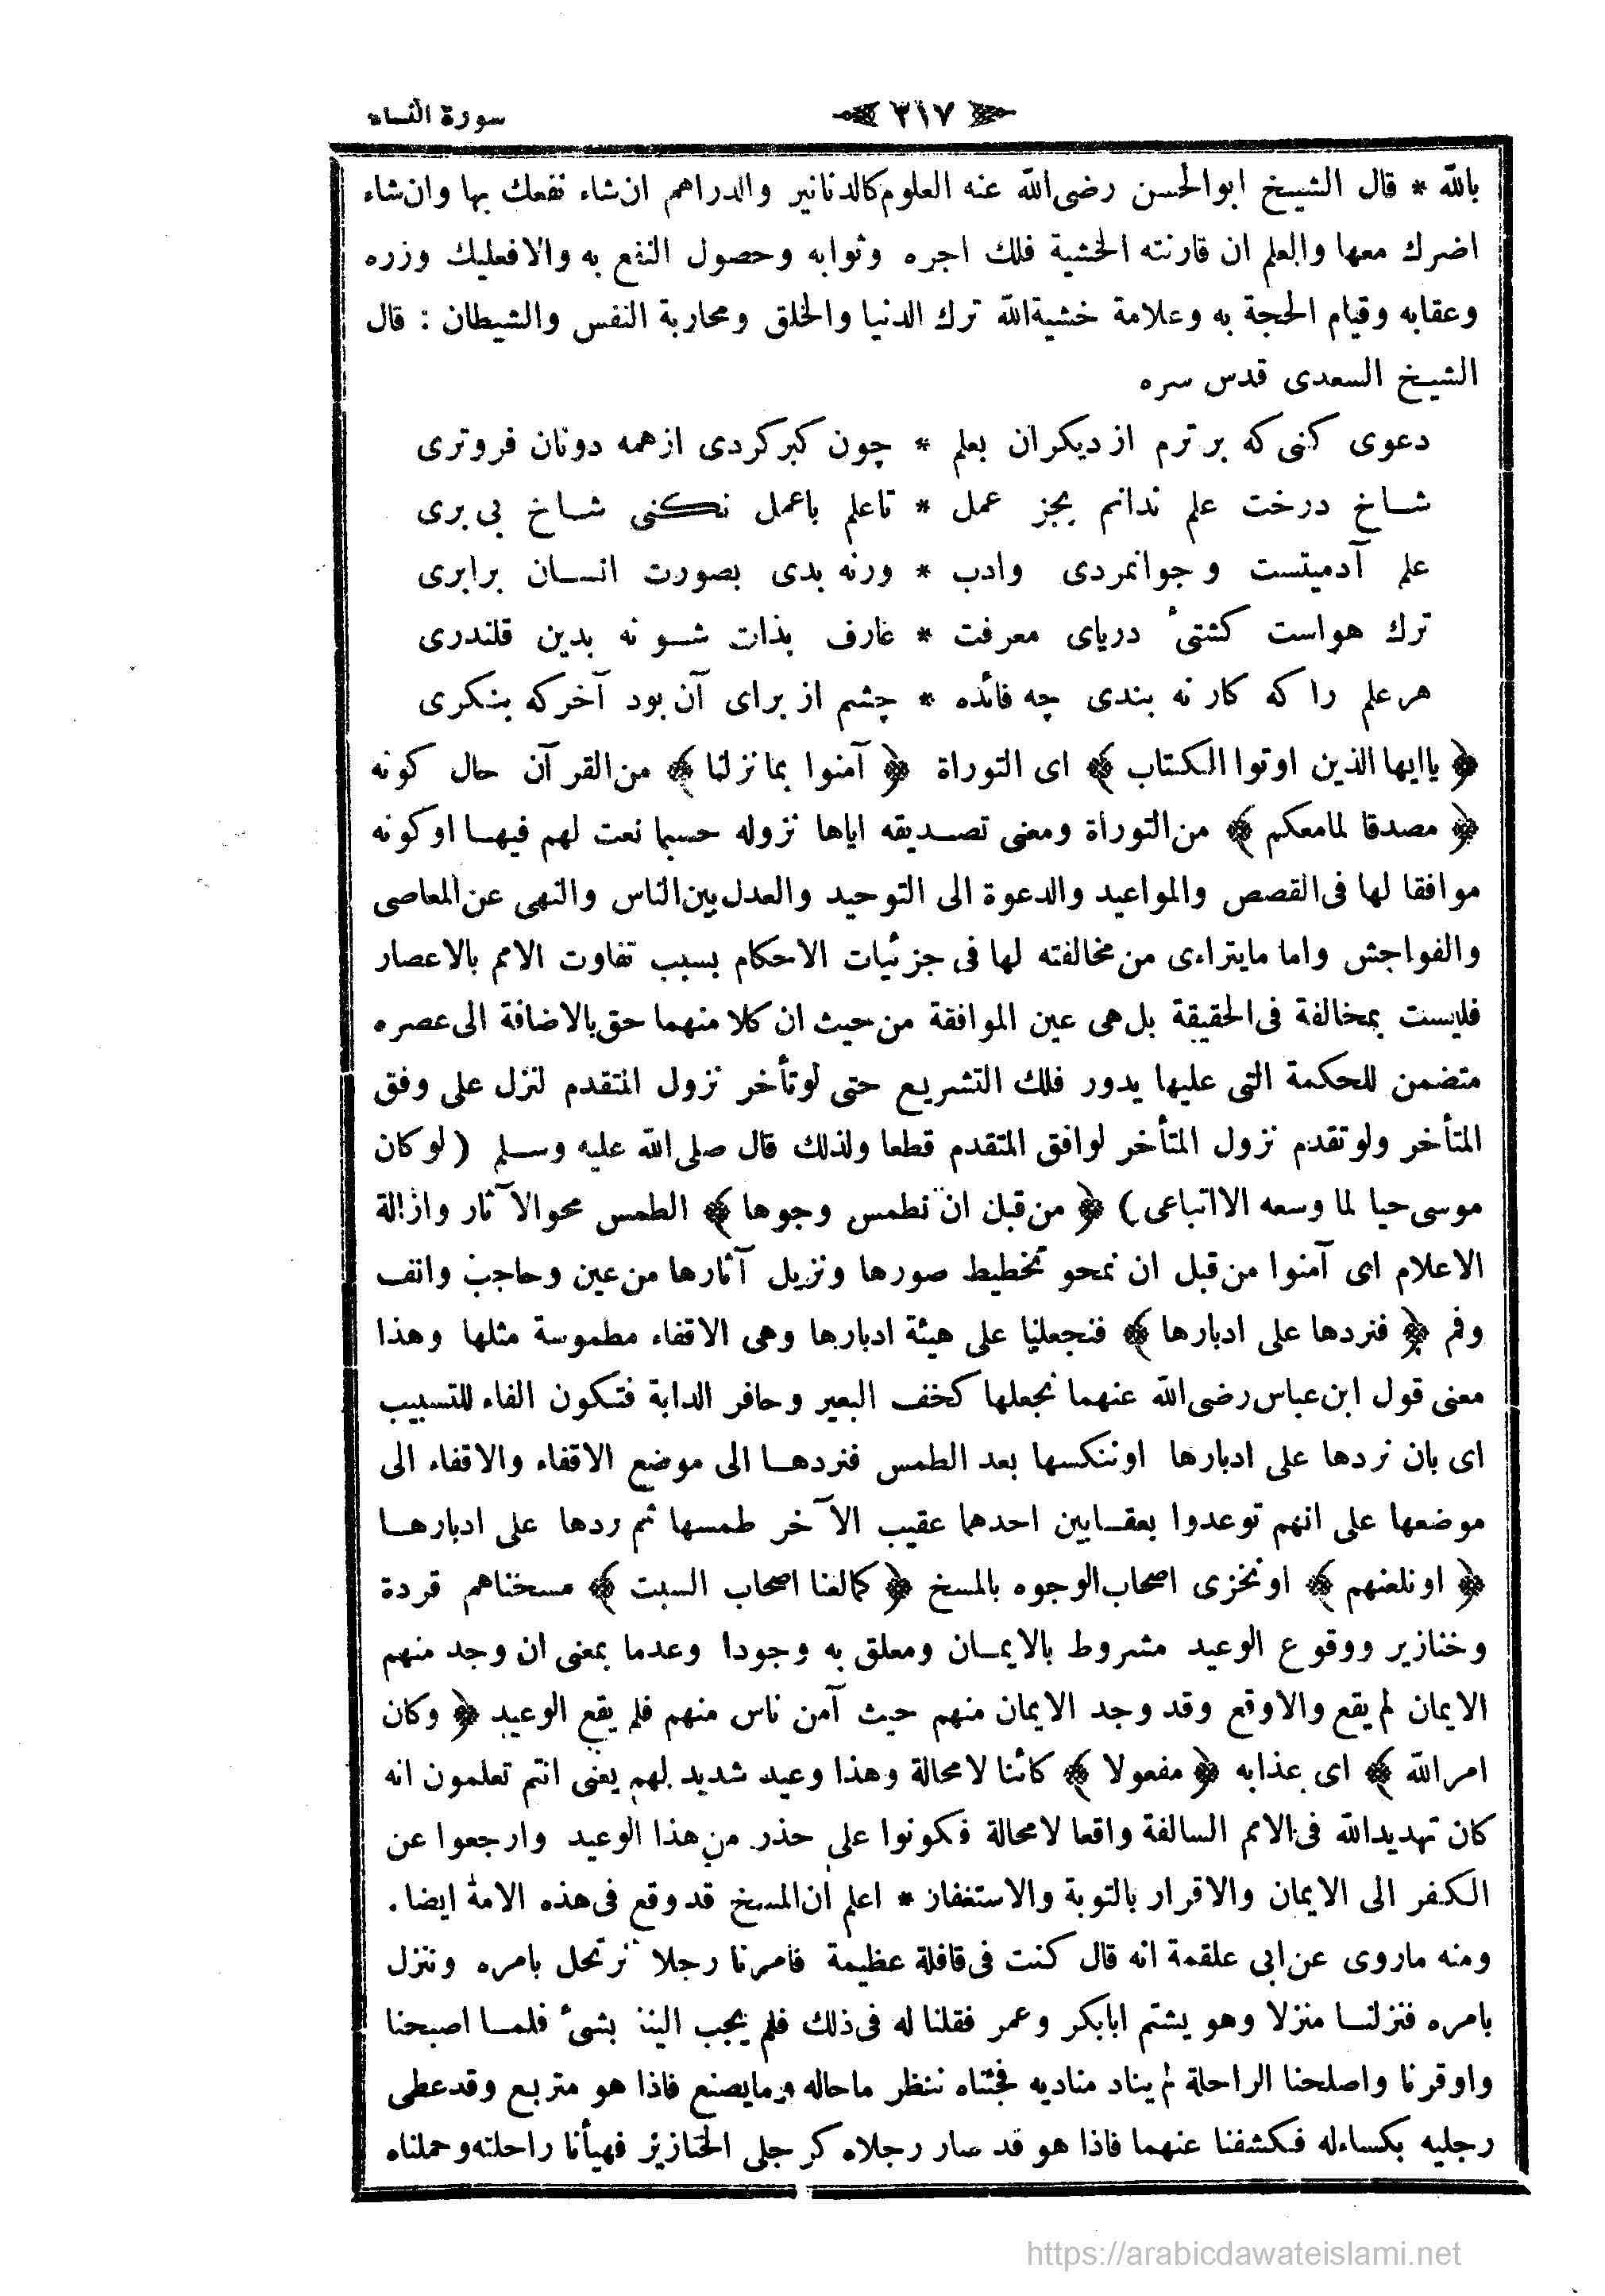 ﴿ ٢١٧ ﴾ سورة النساء
بالله * قال الشيخ ابوالحسن رضى الله عنه العلوم كالدنانير والدراهم ان شاء نفعك بها وان شاء
اضرك معها والعلم ان قارنته الخشية فلك اجره وثوابه وحصول النفع به والا فعليك وزره
وعقابه وقيام الحجة به وعلامة خشية الله ترك الدنيا والخلق ومحاربة النفس والشيطان : قال
الشيخ السعدى قدس سره
دعوى كنى كه برترم از ديكران بعلم * چون كبر كردى ازهمه دونان فروترى
شاخ درخت علم ندانم بجز عمل * تاعلم باعمل نكنى شاخ بى برى
علم آدميتست و جوانمردى وادب * ورنه بدى بصورت انسان برابرى
ترك هواست كشتئ درياى معرفت * عارف بذات شو نه بدين قلندرى
هر علم را كه كار نه بندى چه فائده * چشم از براى آن بود آخر كه بنكرى
﴿ ياايها الذين اوتوا الكتاب ﴾ اى التوراة ﴿ آمنوا بما نزلنا ﴾ من القرآن حال كونه
﴿ مصدقا لما معكم ﴾ من التوراة ومعنى تصديقه اياها نزوله حسبما نعت لهم فيها او كونه
موافقا لها فى القصص والمواعيد والدعوة الى التوحيد والعدل بين الناس والنهى عن المعاصى
والفواحش واما مايتراءى من مخالفته لها فى جزئيات الاحكام بسبب تفاوت الامم بالاعصار
فليست بمخالفة فى الحقيقة بل هى عين الموافقة من حيث ان كلا منهما حق بالاضافة الى عصره
متضمن للحكمة التى عليها يدور فلك التشريع حتى لوتأخر نزول المتقدم لنزل على وفق
المتأخر ولو تقدم نزول المتأخر لوافق المتقدم قطعا ولذلك قال صلى الله عليه وسلم (لوكان
موسى حيا لما وسعه الا اتباعى) ﴿ من قبل ان نطمس وجوها ﴾ الطمس محو الآثار وازالة
الاعلام اى آمنوا من قبل ان نمحو تخطيط صورها ونزيل آثارها من عين وحاجب وانف
وفم ﴿ فنردها على ادبارها ﴾ فنجعلها على هيئة ادبارها وهى الاقفاء مطموسة مثلها وهذا
معنى قول ابن عباس رضى الله عنهما نجعلها كخف البعير وحافر الدابة فتكون الفاء للتسبيب
اى بان نردها على ادبارها اوننكسها بعد الطمس فنردها الى موضع الاقفاء والاقفاء الى
موضعها على انهم توعدوا بعقابين احدهما عقيب الآخر طمسها ثم ردها على ادبارها
﴿ او نلعنهم ﴾ او نخزى اصحاب الوجوه بالمسخ ﴿ كما لعنا اصحاب السبت ﴾ مسخناهم قردة
وخنازير ووقوع الوعيد مشروط بالايمان ومعلق به وجودا وعدما بمعنى ان وجد منهم
الايمان لم يقع والا وقع وقد وجد الايمان منهم حيث آمن ناس منهم فلم يقع الوعيد ﴿ وكان
امرالله ﴾ اى عذابه ﴿ مفعولا ﴾ كائنا لامحالة وهذا وعيد شديد لهم يعنى انتم تعلمون انه
كان تهديد الله فى الامم السالفة واقعا لامحالة فكونوا على حذر من هذا الوعيد وارجعوا عن
الكفر الى الايمان والاقرار بالتوبة والاستغفار * اعلم ان المسخ قد وقع فى هذه الامة ايضا.
ومنه ماروى عن ابى علقمة انه قال كنت فى قافلة عظيمة فامرنا رجلا نرتحل بامره وننزل
بامره فنزلنا منزلا وهو يشتم ابابكر وعمر فقلنا له فى ذلك فلم يجب الينا بشئ فلما اصبحنا
واوقرنا واصلحنا الراحلة لم يناد مناديه فجئناه ننظر ماحاله ومايصنع فاذا هو متربع وقدغطى
رجليه بكساءله فكشفنا عنهما فاذا هو قد صار رجلاه كرجلى الخنازير فهيأنا راحلته وحملناه
https://arabicdawateislami.net